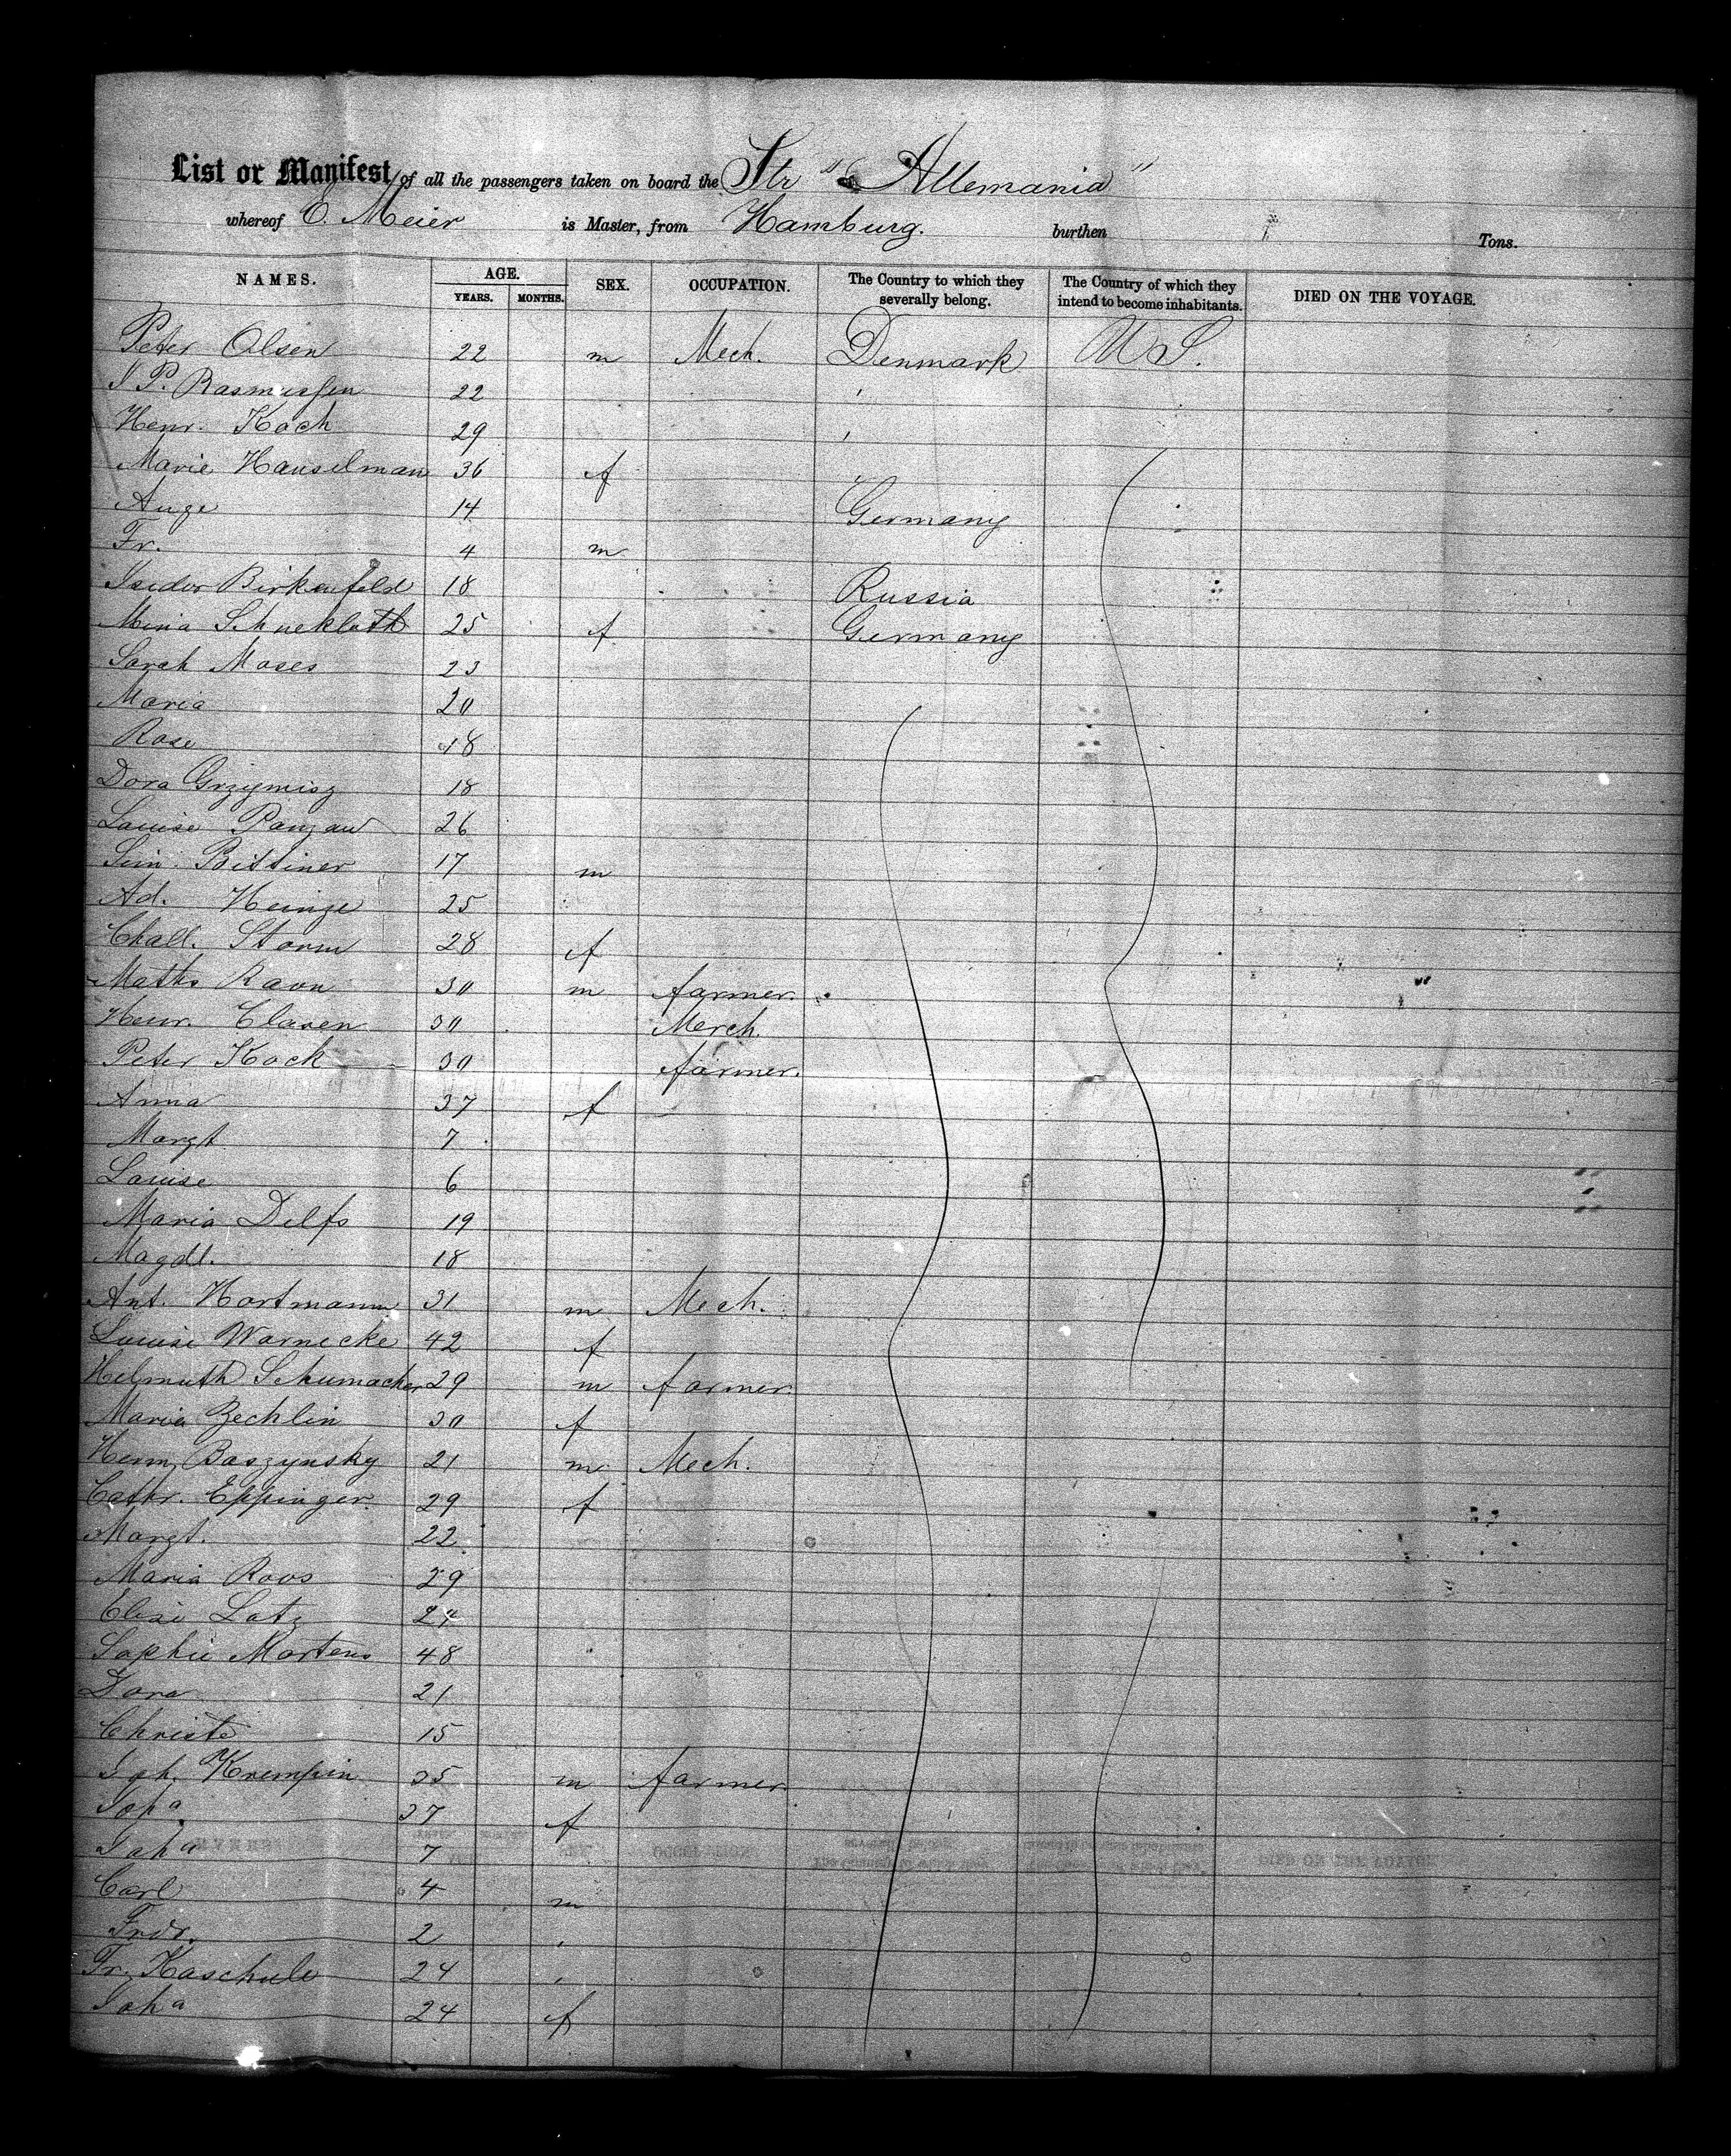 List or Manifest of all the passengers taken on board the Str "Allemania"
whereof E. Meier is Master, from Hamburg. burthen Tons.
NAMES. AGE. SEX. OCCUPATION. The Country to which they severally belong. The Country of which they intend to become inhabitants. DIED ON THE VOYAGE.
YEARS. MONTHS.
Peter Olsen 22 m Mech. Denmark U S.
J P. Rasmussen 22 '
Henr. Koch 29 '
Marie Hauselman 36 f
Auge 14 Germany
Fr. 4 m
Isidor Birkenfeld 18 Russia
Mina Schnekloth 25 f Germany
Sarah Moses 23
Maria 20
Rose 18
Dora Grzymisz 18
Louise Panzau 26
Sim. Bittiner 17 m
Ad. Heinze 25
Chatl. Storm 28 f
Maths Ravn 30 m farmer.
Henr. Claren 30 Merch.
Peter Kock 30 farmer.
Anna 37 f
Margt 7
Louise 6
Maria Delfs 19
Magdl. 18
Ant. Hartmann 31 m Mech.
Louise Warnecke 42 f
Helmuth Schumacher 29 m farmer
Maria Zechlin 30 f
Herm. Baszynsky 21 m Mech.
Cathr. Eppinger. 29 f
Margt. 22
Maria Roos 29
Elise Latz 24
Sophie Martens 48
Dora 21
Christe 15
Joh. Krempin 35 m farmer.
Sopa 37 f
Joha 7
Carl 4 m
Frdr. 2 '
Fr. Kaschule 24 '
Joha 24 f